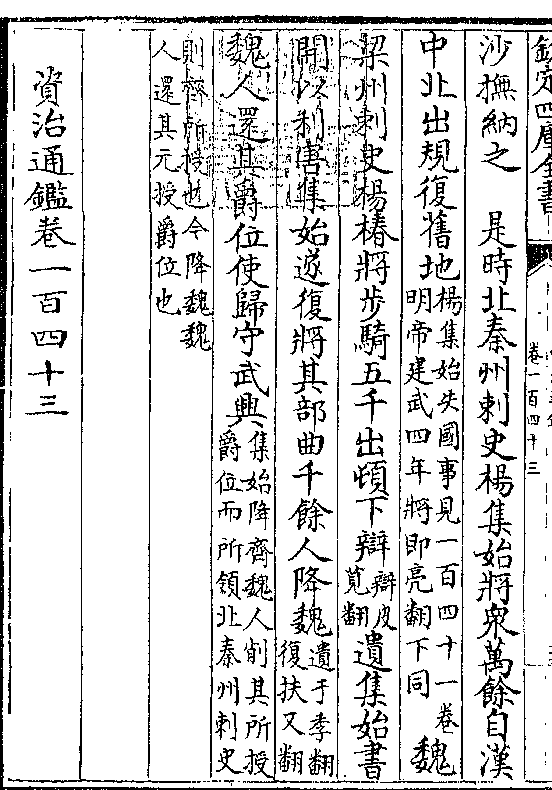 欽定四庫全書
卷一百四十三
沙撫納之　是時北秦州刺史楊集始將衆萬餘自漢
中北出規復舊地楊集始失國事見一百四十一卷明帝建武四年將即亮翻下同魏
梁州刺史楊椿將步騎五千出頓下辯辯皮莧翻遺集始書
開以利害集始遂復將其部曲千餘人降魏遺于季翻復扶又翻
魏人還其爵位使歸守武興集始降齊魏人削其所授爵位而所領北秦州刺史
則齊所授也今降魏魏人還其元授爵位也
資治通鑑卷一百四十三